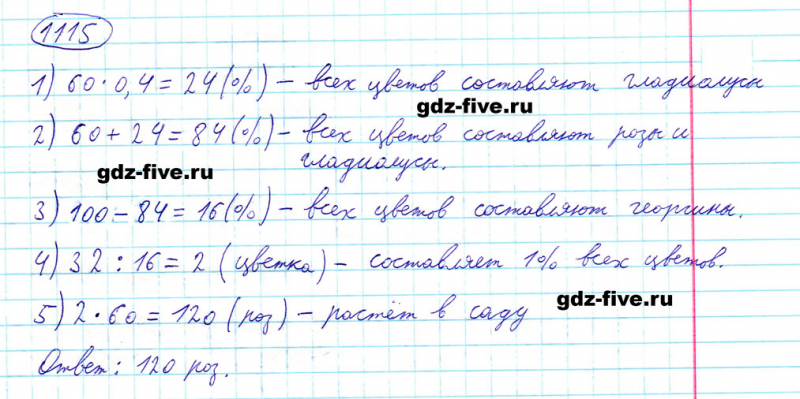 1115
1) 60 · 0,4 = 24 (%) – всех цветов составляют гладиолусы
gdz-five.ru
2) 60 + 24 = 84 (%) – всех цветов составляют розы и
гладиолусы.
gdz-five.ru
3) 100 – 84 = 16 (%) – всех цветов составляют георгины.
4) 32 : 16 = 2 (цветка) – составляет 1% всех цветов.
gdz-five.ru
5) 2 · 60 = 120 (роз) – растёт в саду
Ответ: 120 роз.